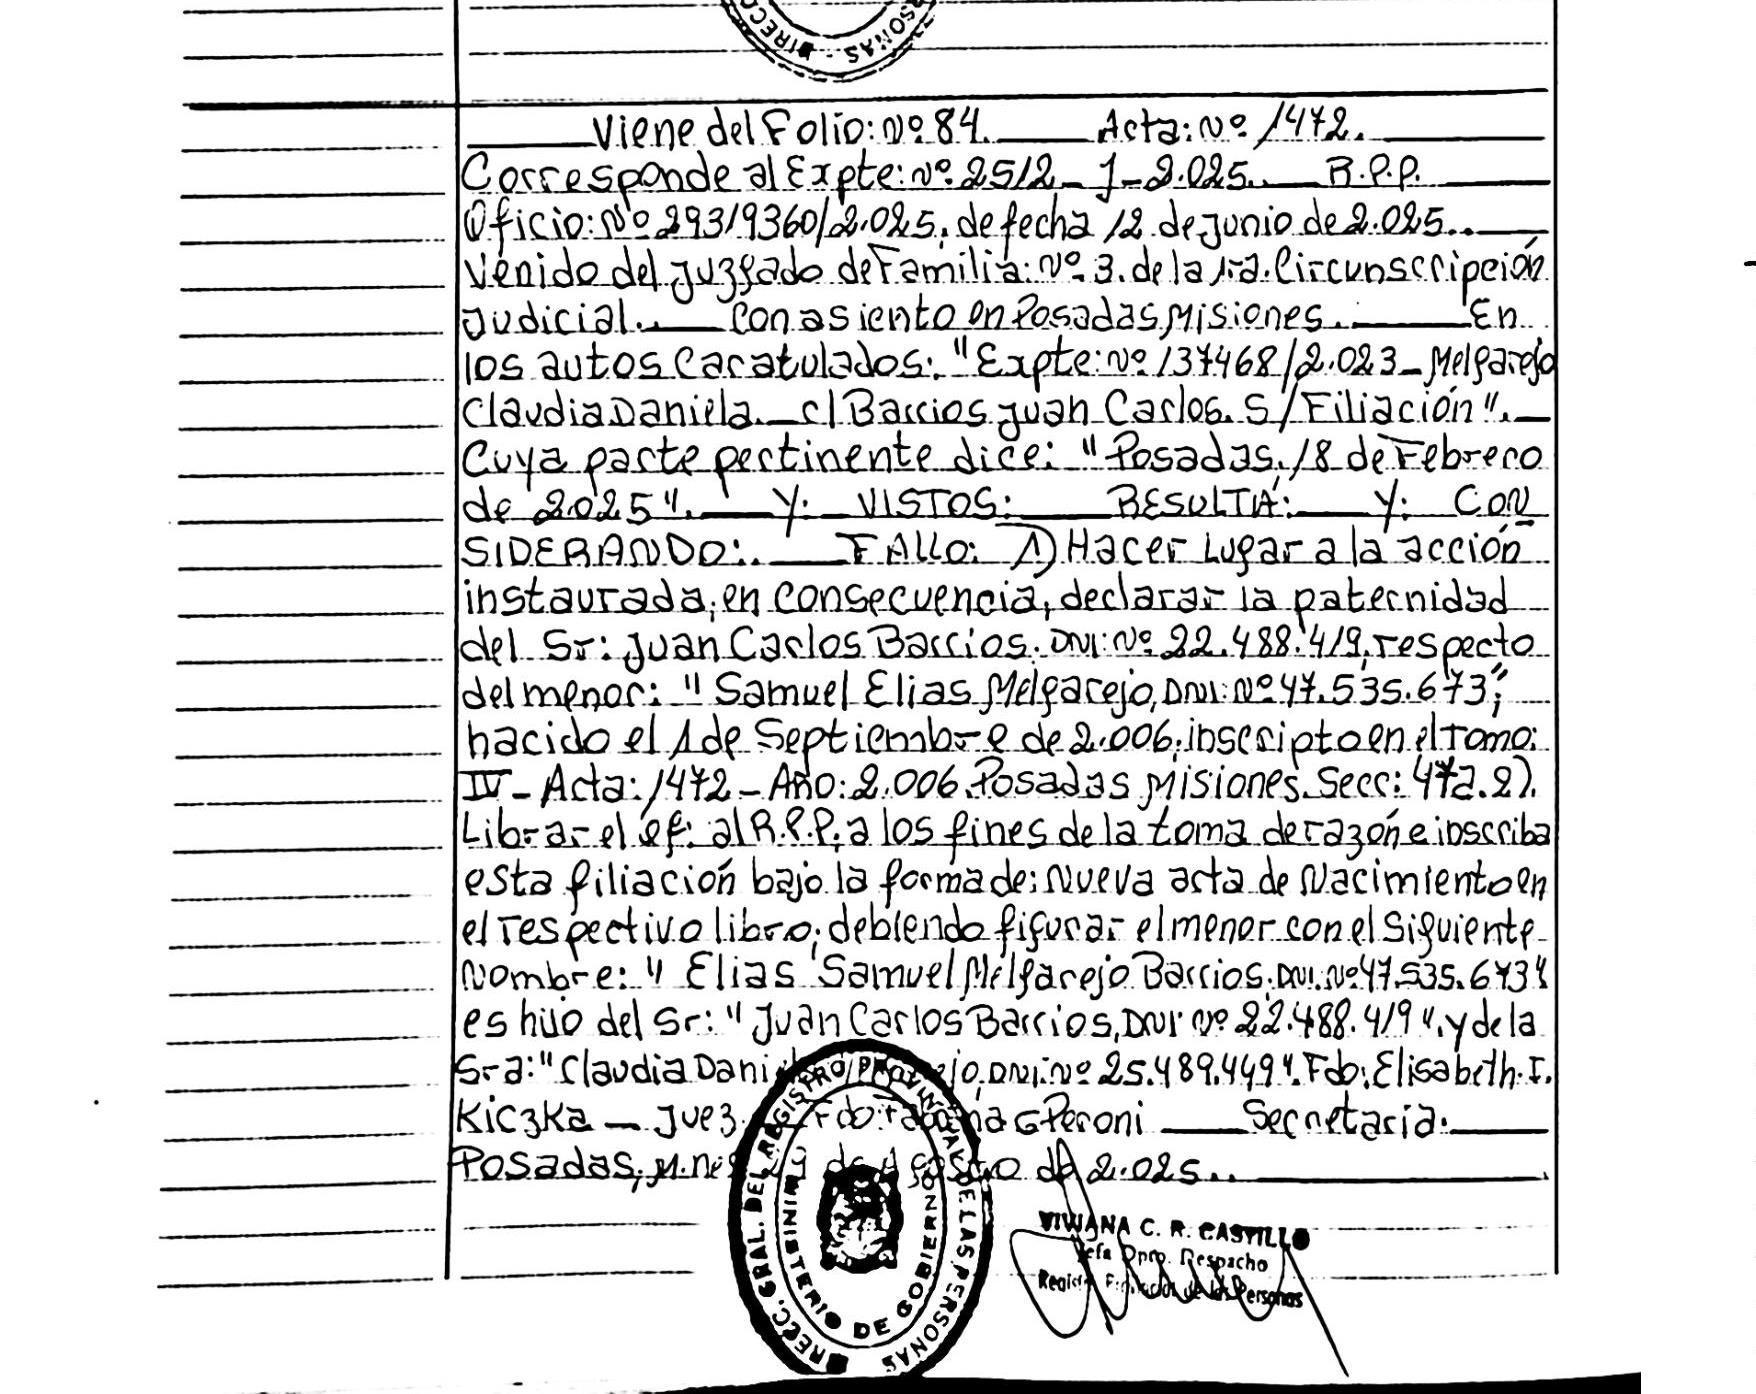 SONAS - DIRECC
Viene del Folio: Nº 84. Acta: Nº 1472.
Corresponde al Expte: Nº 2512 - J - 2.025. R.P.P.
Oficio: Nº 293/9360/2.025, de fecha 12 de junio de 2.025..
Venido del juzgado de Familia: Nº 3. de la 1ra. Circunscripción
Judicial. Con asiento en Posadas Misiones. En
los autos Caratulados: "Expte: Nº 137468/2.023 - Melgarejo
Claudia Daniela. c/ Barrios Juan Carlos. S/Filiación".
Cuya parte pertinente dice: "Posadas, 18 de Febrero
de 2025". Y: VISTOS: RESULTIA: Y: CON
SIDERANDO:. FALLO: 1) Hacer Lugar a la acción
instaurada, en consecuencia, declarar la paternidad
del Sr: Juan Carlos Barrios. DNI: Nº 22.488.419, respecto
del menor: "Samuel Elias Melgarejo, DNI: Nº 47.535.673",
nacido el 1 de Septiembre de 2.006, inscripto en el Tomo:
IV - Acta: 1472 - Año: 2.006. Posadas Misiones. Secc: 472. 2).
Librar el of. al R.P.P. a los fines de la toma de razón e inscriba
esta filiación bajo la forma de: Nueva acta de Nacimiento en
el respectivo libro, debiendo figurar el menor con el siguiente
Nombre: "Elias Samuel Melgarejo Barrios. DNI. Nº 47.535.673"
es hijo del Sr: "Juan Carlos Barrios, DNI Nº 22.488.419", y de la
Sra: "Claudia Dani ejo. DNI: Nº 25.489.449". Fdo: Elisabeth. I.
Kiczka — Juez. Fdo: Fabiana G Peroni Secretaria:
Posadas, Mnes 29 de Agosto de 2.025..
DIRECC. GRAL. DEL REGISTRO PROVINCIAL DE LAS PERSONAS
MINISTERIO DE GOBIERNO
VIVIANA C. R. CASTILLO
Jefa Dpto. Despacho
Registro Provincial de las Personas